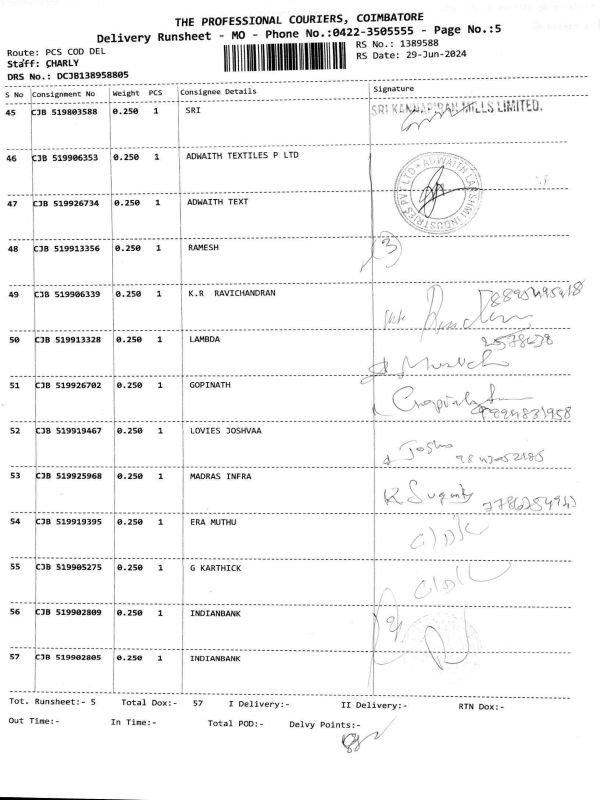 THE PROFESSIONAL COURIERS, COIMBATORE
Delivery Runsheet - MO - Phone No.:0422-3505555 - Page No.:5
Route: PCS COD DEL
RS No.: 1389588
Staff: CHARLY
RS Date: 29-Jun-2024
DRS No.: DCJB138958805
S No Consignment No Weight PCS Consignee Details Signature
45 CJB 519803588 0.250 1 SRI SRI KANNAPIRAN MILLS LIMITED.
46 CJB 519906353 0.250 1 ADWAITH TEXTILES P LTD
ADWAITH LAKSHMI INDUSTRIES PVT LTD
47 CJB 519926734 0.250 1 ADWAITH TEXT
48 CJB 519913356 0.250 1 RAMESH
49 CJB 519906339 0.250 1 K.R RAVICHANDRAN
50 CJB 519913328 0.250 1 LAMBDA
51 CJB 519926702 0.250 1 GOPINATH Gopinath
52 CJB 519919467 0.250 1 LOVIES JOSHVAA
53 CJB 519925968 0.250 1 MADRAS INFRA
54 CJB 519919395 0.250 1 ERA MUTHU
55 CJB 519905275 0.250 1 G KARTHICK
56 CJB 519902809 0.250 1 INDIANBANK
57 CJB 519902805 0.250 1 INDIANBANK
Tot. Runsheet:- 5 Total Dox:- 57 I Delivery:- II Delivery:- RTN Dox:-
Out Time:- In Time:- Total POD:- Delvy Points:-